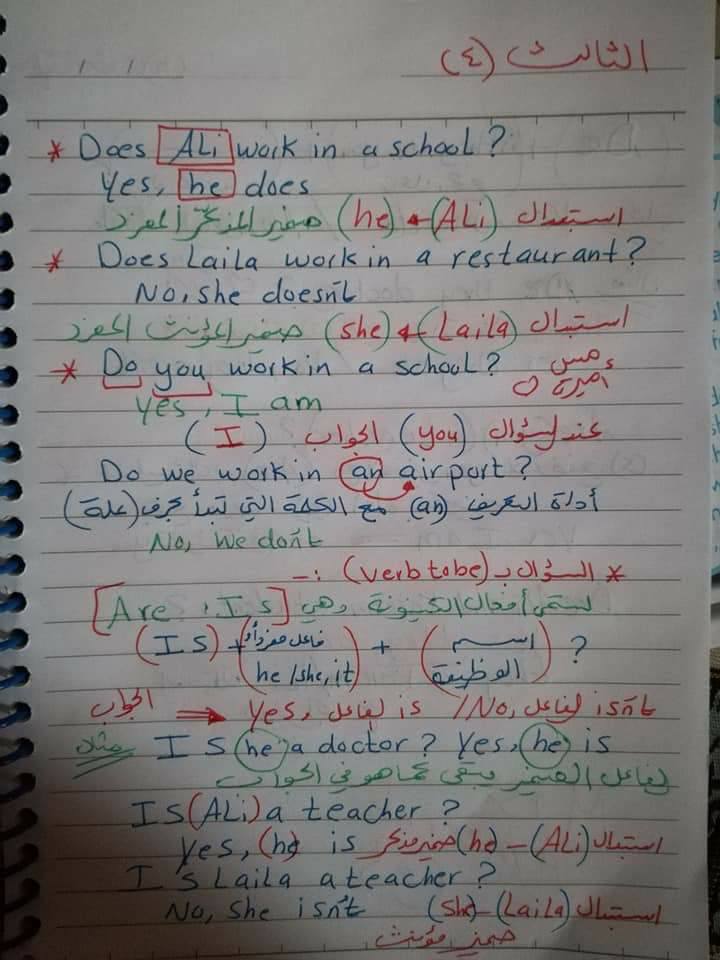 الثالث (٤)
/ /
* Does ALi work in a school?
Yes, he does
استبدال (ALi) ← (he) ضمير المذكر المفرد
* Does Laila work in a restaurant?
No, she doesn't
استبدال (Laila) ← (she) ضمير المؤنث المفرد
* Do you work in a school?
مس
أميرة
Yes, I am
عند السؤال (you) الجواب (I)
Do we work in an airport?
أداة التعريف (an) مع الكلمة التي تبدأ بحرف (علة)
No, we don't
* السؤال بـ (verb to be) :-
تسمى أفعال الكينونة وهي [Are , Is]
(Is) + (فاعل مفرد he/she, it) + (اسم الوظيفة) ?
الجواب ⇒ Yes, الفاعل is / No, الفاعل isn't
مثال Is he a doctor? Yes, he is
الفاعل الضمير يبقى كما هو في الجواب
Is (ALi) a teacher?
Yes, (he) is استبدال (ALi) – (he) ضمير مذكر
Is Laila a teacher?
No, She isn't استبدال (Laila) – (She)
ضمير مؤنث